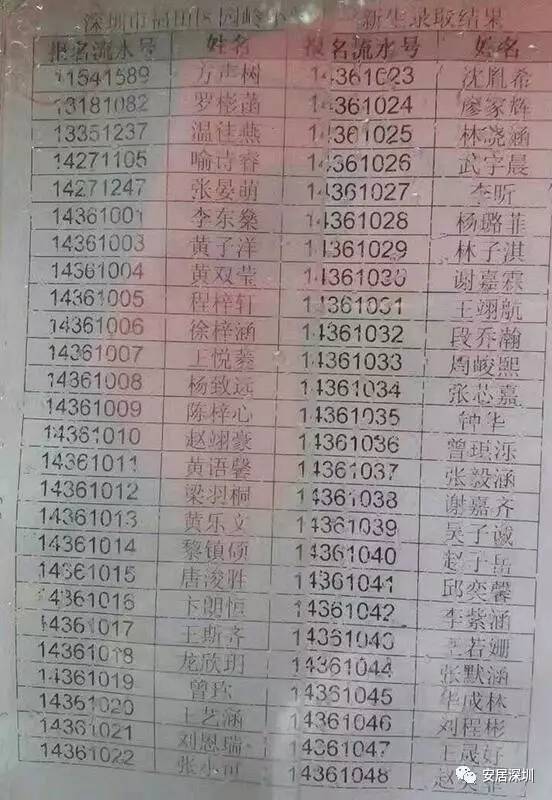 深圳市福田区园岭小 新生录取结果
报名流水号 姓名 报名流水号 姓名
11541589 方声树 14361023 沈胤希
13181082 罗彬菡 14361024 廖家辉
13351237 温佳燕 14361025 林晓涵
14271105 喻诗睿 14361026 武宇晨
14271247 张晏萌 14361027 李昕
14361001 李东燊 14361028 杨璐菲
14361003 黄子洋 14361029 林子淇
14361004 黄双莹 14361030 谢嘉霖
14361005 程梓轩 14361031 王翊航
14361006 徐梓涵 14361032 段乔瀚
14361007 王悦蓁 14361033 周峻熙
14361008 杨致远 14361034 张芯嘉
14361009 陈梓心 14361035 钟华
14361010 赵翊豪 14361036 曾琪泺
14361011 黄语馨 14361037 张毅涵
14361012 梁羽桐 14361038 谢嘉齐
14361013 黄乐文 14361039 吴子诚
14361014 黎镇硕 14361040 赵子岳
14361015 唐浚胜 14361041 邱奕馨
14361016 卞朗恒 14361042 李紫涵
14361017 王斯齐 14361043 王若姗
14361018 龙欣玥 14361044 张默涵
14361019 曾 14361045 华成林
14361020 艺涵 14361046 刘程彬
14361021 刘恩瑞 14361047 王晟好
14361022 张小可 14361048 赵
安居深圳